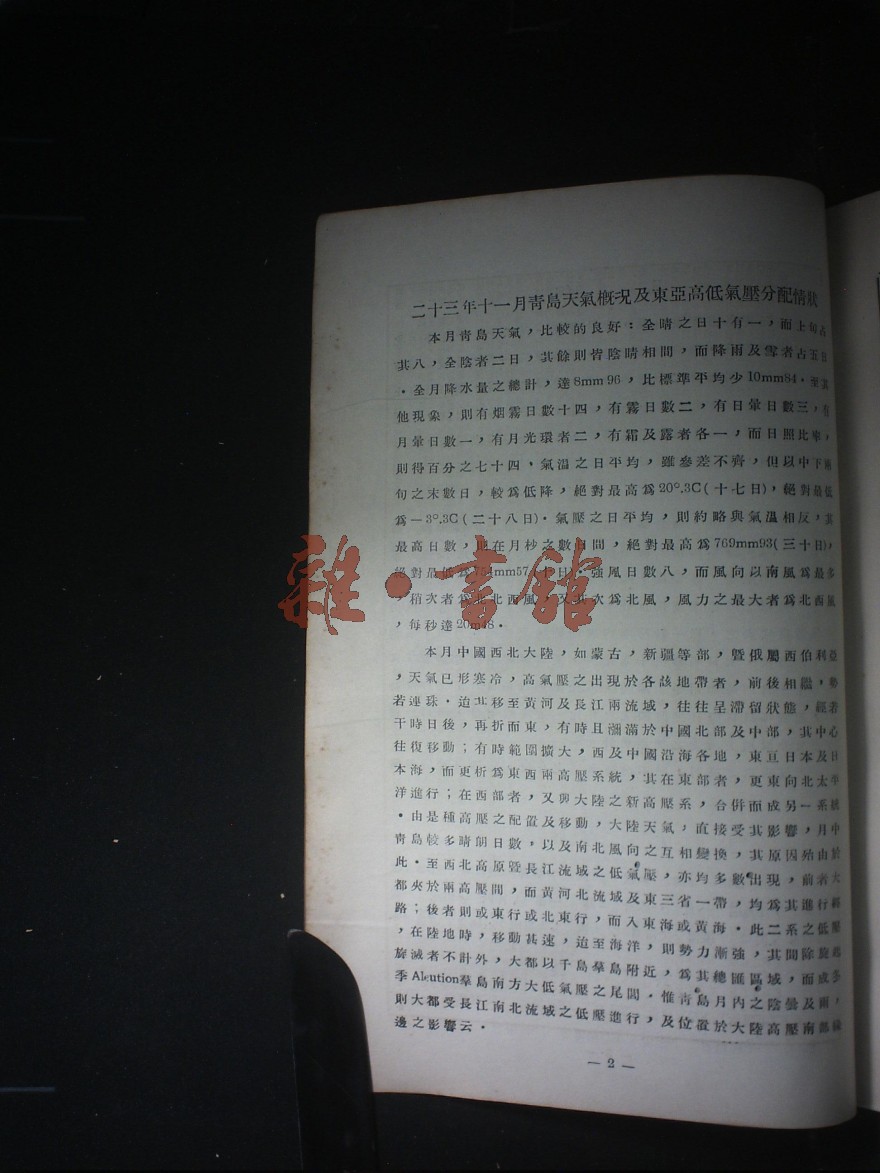 二十三年十一月靑島天氣槪况及東亞高低氣壓分配情狀
本月靑島天氣，比較的良好：全晴之日十有一，而上旬占
其八，全陰者二日，其餘則皆陰晴相間，而降雨及雪者占五日
．全月降水量之總計，達8mm96，比標準平均少10mm84．至其
他現象，則有烟霧日數十四，有霧日數二，有日暈日數三，有
月暈日數一，有月光環者二，有霜及露者各一，而日照比率，
則得百分之七十四．氣溫之日平均，雖參差不齊，但以中下兩
旬之末數日，較爲低降，絕對最高爲20°.3C(十七日)，絕對最低
爲－3°.3C(二十八日)．氣壓之日平均，則約略與氣溫相反，其
最高日數，則在月杪之數日間，絕對最高爲769mm93(三十日)，
絕對最低爲751mm57(日)．強風日數八，而風向以南風爲最多
，稍次者爲北北西風，又其次爲北風，風力之最大者爲北西風
，每秒達20m48．
本月中國西北大陸，如蒙古，新疆等部，暨俄屬西伯利亞
，天氣已形寒冷，高氣壓之出現於各該地帶者，前後相繼，勢
若連珠．迨其移至黃河及長江兩流域，往往呈滯留狀態，經若
干時日後，再折而東，有時且瀰滿於中國北部及中部，其中心
往復移動；有時範圍擴大，西及中國沿海各地，東亘日本及日
本海，而更析爲東西兩高壓系統，其在東部者，更東向北太平
洋進行；在西部者，又與大陸之新高壓系，合併而成另一系統
．由是種高壓之配置及移動，大陸天氣，直接受其影響，月中
靑島較多晴朗日數，以及南北風向之互相變換，其原因殆由於
此．至西北高原暨長江流域之低氣壓，亦均多數出現，前者大
都夾於兩高壓間，而黃河北流域及東三省一帶，均爲其進行經
路；後者則或東行或北東行，而入東海或黃海．此二系之低壓
，在陸地時，移動甚速，迨至海洋，則勢力漸強，其間除旋起
旋滅者不計外，大都以千島羣島附近，爲其總匯區域，而成冬
季Aleution羣島南方大低氣壓之尾閭．惟靑島月內之陰曇及雨，
則大都受長江南北流域之低壓進行，及位置於大陸高壓南部緣
邊之影響云．
— 2 —
雜·書館